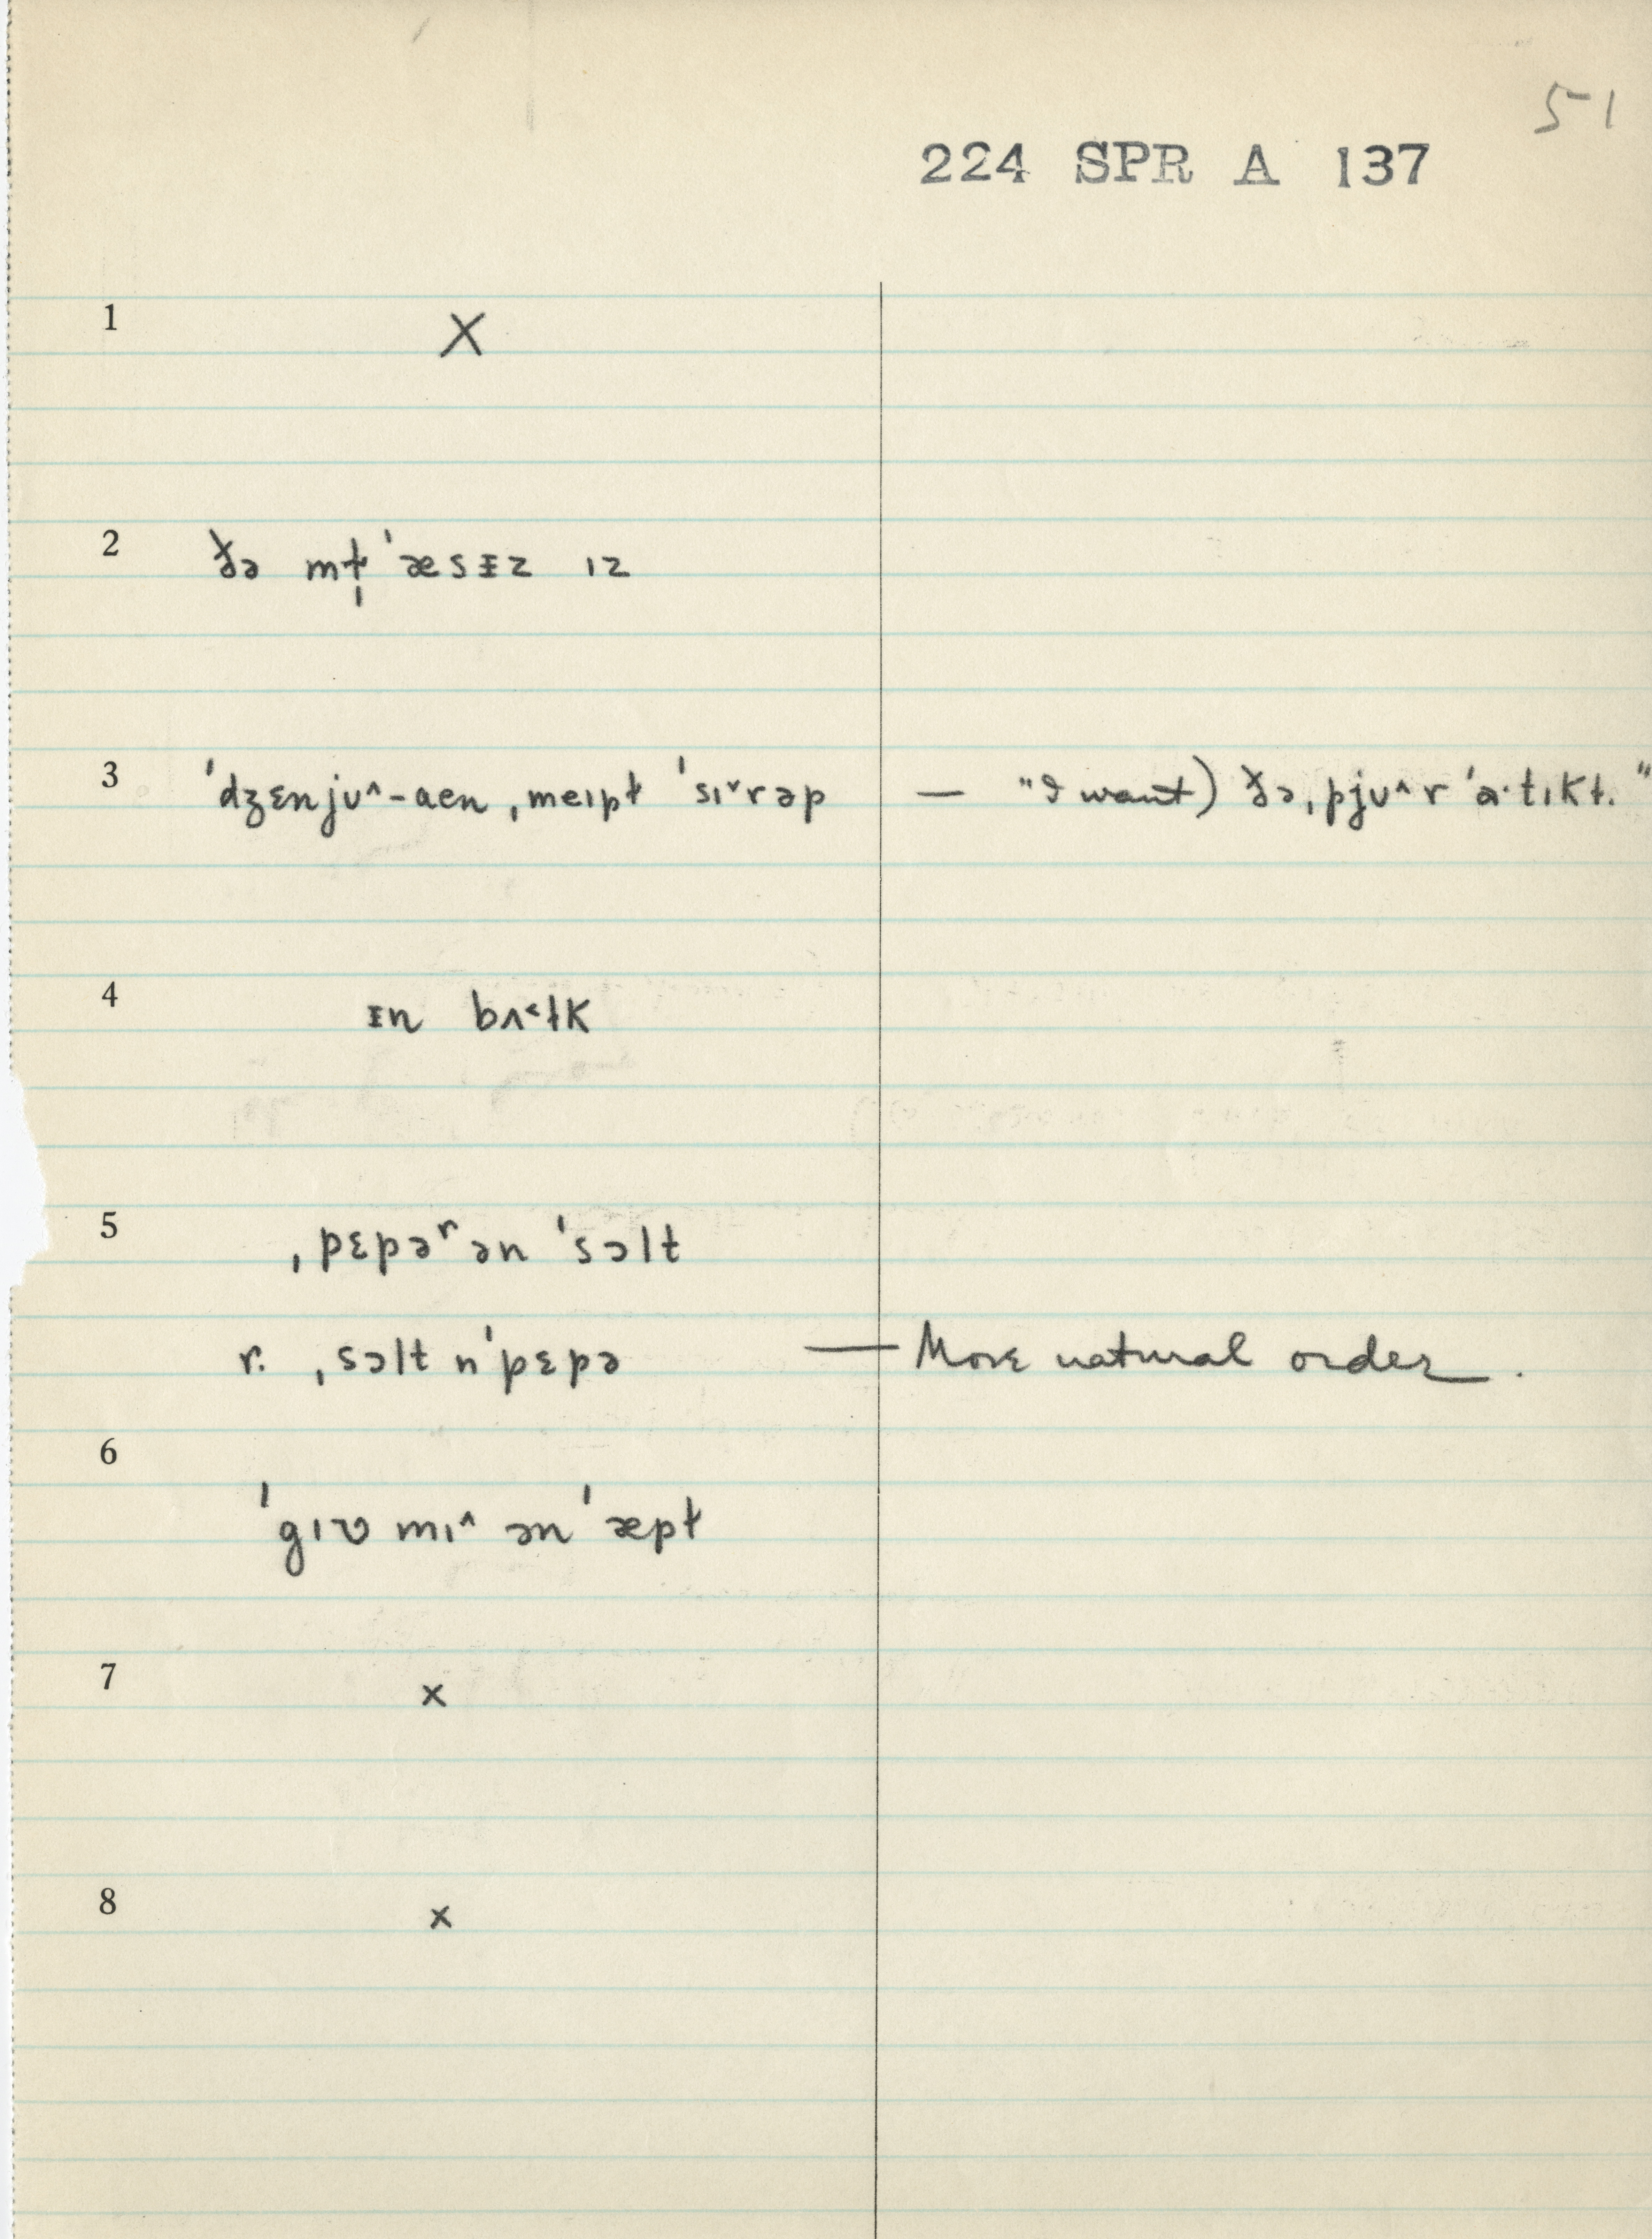 51
224 SPR A 137
1 X
2 ðə mɫ̩ˈæsᵻz ɪz
3 ˈdʒɛnjʊ^-aɛn ˌmeɪpɫ ˈsɪˇrəp — "I want) ðə ˌpjʊ^r ˈɑ·tɪkɫ."
4 ᵻn bʌ˂ɫk
5 ˌpɛpəʳ ən ˈsɔlt
r. ˌsɔlt nˈpɛpə — More natural order.
6
ˈgɪv mɪ^ ən ˈæpɫ
7 x
8 x